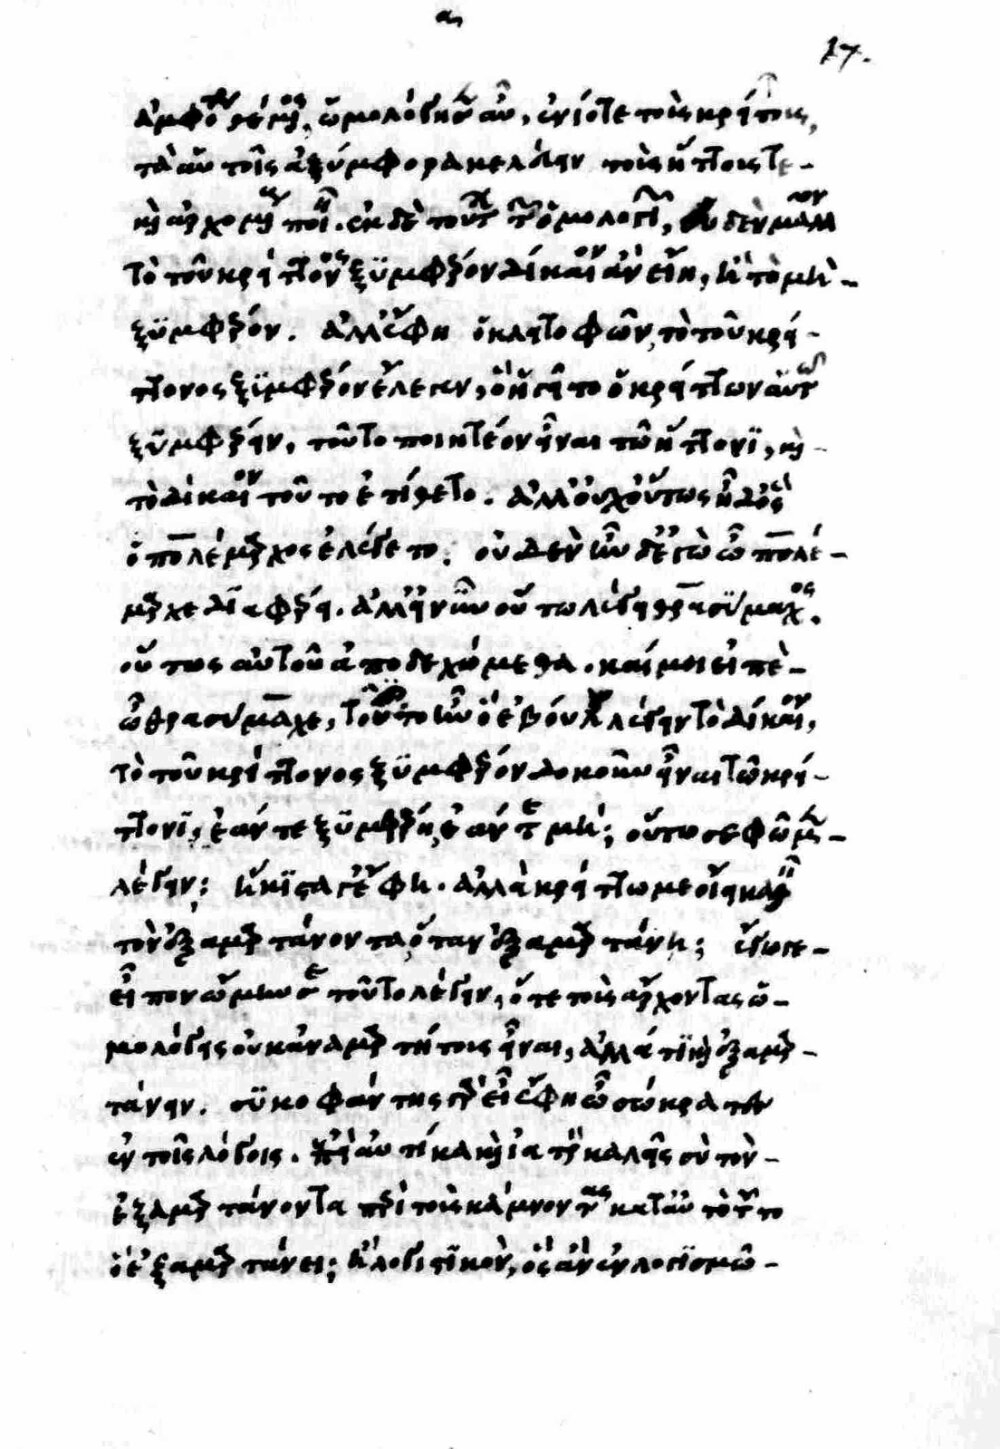 α
17.
ἀμφότερα θέμενος, ὡμολόγησεν αὖ, ἐνίοτε τοὺς κρείττους,
τὰ αὑτοῖς ἀξύμφορα κελεύειν τοὺς ἥττους τε
καὶ ἀρχομένους ποιεῖν. ἐκ δὲ τούτων τῶν ὁμολογιῶν, οὐδὲν μᾶλλον
τὸ τοῦ κρείττονος ξυμφέρον δίκαιον ἂν εἴη, ἢ τὸ μὴ
ξυμφέρον. ἀλλ' ἔφη ὁ κλειτοφῶν, τὸ τοῦ κρεί-
ττονος ξυμφέρον ἔλεγεν, ὃ ἡγεῖτο ὁ κρείττων αὑτῷ
ξυμφέρειν, τοῦτο ποιητέον εἶναι τῷ ἥττονι, καὶ
τὸ δίκαιον τοῦτο ἐτίθετο. ἀλλ' οὐχ οὕτως ἦ δ' ὃς
ὁ πολέμαρχος ἐλέγετο. οὐδὲν ἦν δ' ἐγὼ ὦ πολέ-
μαρχε διαφέρει. ἀλλ' εἰ νῦν οὕτω λέγει θρασύμαχος.
οὕτως αὐτοῦ ἀποδεχώμεθα. καί μοι εἰπὲ
ὦ θρασύμαχε, τοῦτο ἦν ὃ ἐβούλου λέγειν τὸ δίκαιον,
τὸ τοῦ κρείττονος ξυμφέρον δοκοῦν εἶναι τῷ κρεί-
ττονι, ἐάν τε ξυμφέρῃ, ἐάν τε μή; οὕτω σε φῶμεν
λέγειν; ἥκιστά γ' ἔφη. ἀλλὰ κρείττω με οἴει καλεῖν
τὸν ἐξαμαρτάνοντα ὅταν ἐξαμαρτάνῃ; ἔγωγε
εἶπον ᾤμην σε τοῦτο λέγειν, ὅτε τοὺς ἄρχοντας ὡ-
μολόγεις οὐκ ἀναμαρτήτους εἶναι, ἀλλά τι καὶ ἐξαμαρ-
τάνειν. συκοφάντης γὰρ εἶ ἔφη ὦ σώκρατες
ἐν τοῖς λόγοις. ἐπεὶ αὐτίκα ἰατρὸν καλεῖς σὺ τὸν
ἐξαμαρτάνοντα περὶ τοὺς κάμνοντας κατ' αὐτὸ τοῦτο
ὃ ἐξαμαρτάνει; ἢ λογιστικὸν, ὃς ἂν ἐν λογισμῷ